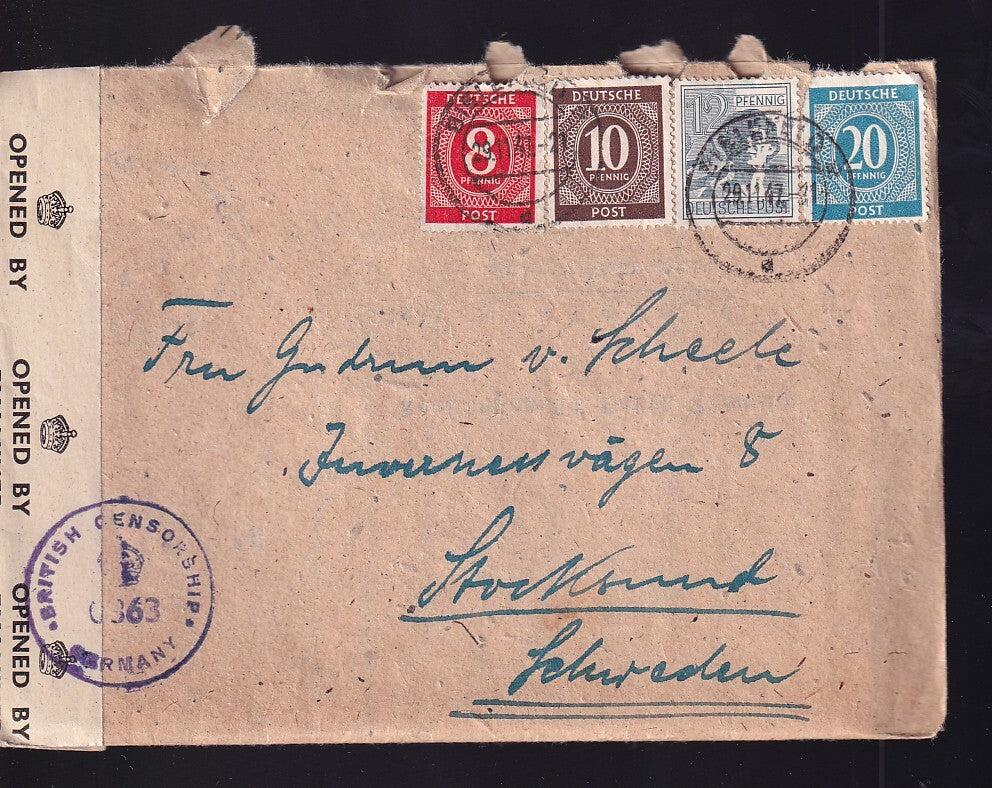 DEUTSCHE
8
PFENNIG
POST
DEUTSCHE
10
PFENNIG
POST
12 PFENNIG
DEUTSCHE POST
DEUTSCHE
20
PFENNIG
POST
29.11.47
Frau Gudrun v. Scheele
Invernessvägen 8
Stocksund
Schweden
OPENED BY
OPENED BY
OPENED BY
BRITISH CENSORSHIP
GERMANY